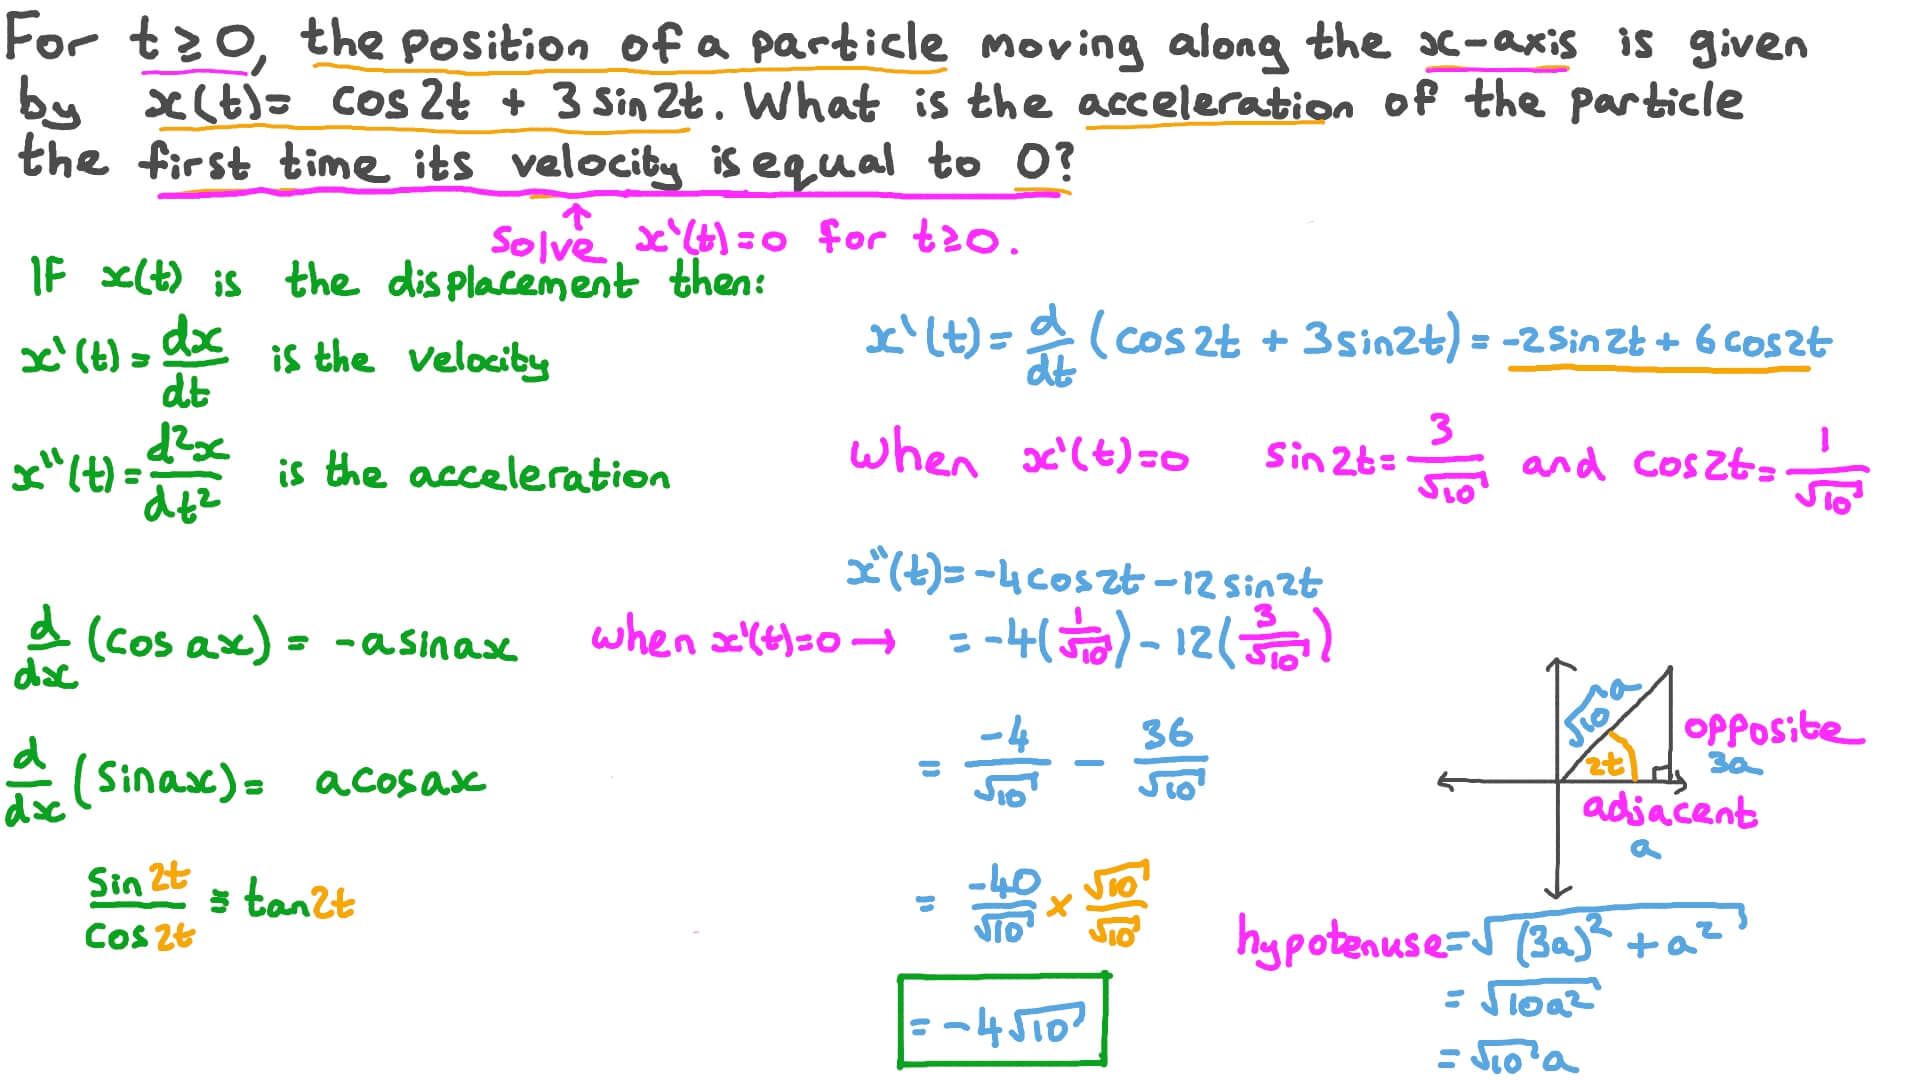 For t ≥ 0, the position of a particle moving along the x-axis is given
by x(t) = cos 2t + 3 sin 2t. What is the acceleration of the particle
the first time its velocity is equal to 0?
↑
solve x'(t) = 0 for t ≥ 0.
If x(t) is the displacement then:
x'(t) = dx/dt is the velocity
x''(t) = d²x/dt² is the acceleration
d/dx (cos ax) = -a sin ax
d/dx (sin ax) = a cos ax
sin 2t / cos 2t ≡ tan 2t
x'(t) = d/dt (cos 2t + 3 sin 2t) = -2 sin 2t + 6 cos 2t
When x'(t) = 0 sin 2t = 3/√10 and cos 2t = 1/√10
x''(t) = -4 cos 2t - 12 sin 2t
when x'(t) = 0 → = -4(1/√10) - 12(3/√10)
= -4/√10 - 36/√10
= -40/√10 × √10/√10
= -4√10
√10 a
opposite
2t
3a
adjacent
a
hypotenuse = √((3a)² + a²)
= √(10a²)
= √10 a